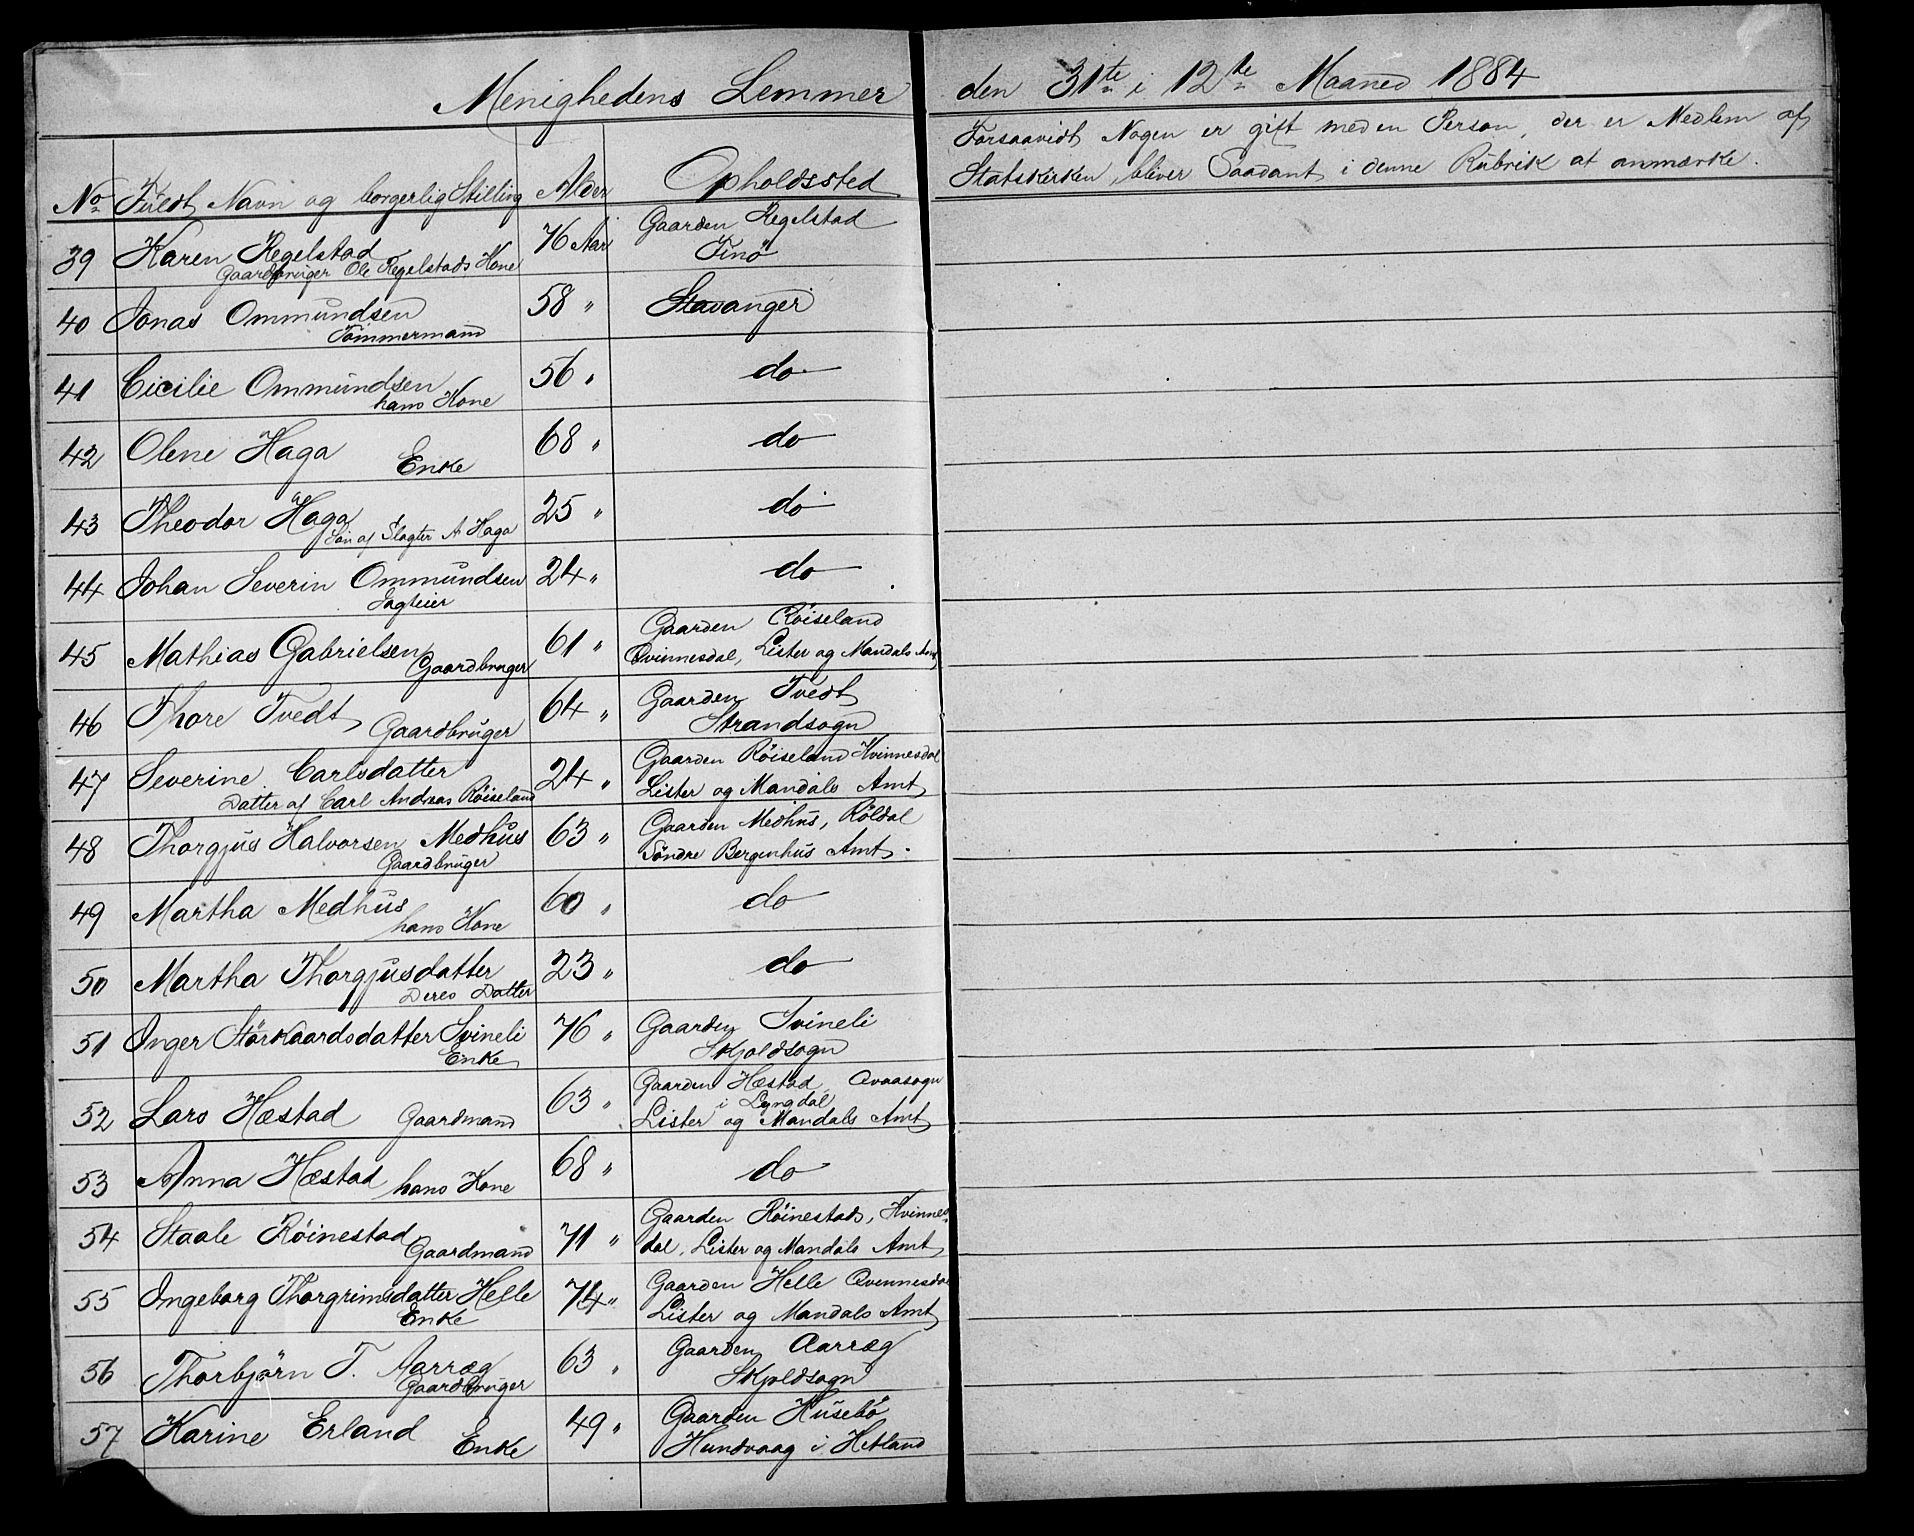 Menighedens Lemmer den 31te i 12te Maaned 1884
No Fuldt Navn og borgerlig Stilling Alder Opholdssted
Forsaavidt Nogen er gift med en Person, der er Medlem af
Statskirken, bliver Saadant i denne Rubrik at anmærke.
39 Karen Regelstad 76 Aar Gaarden Regelstad
Gaardbruger Ole Regelstads Kone Finö
40 Jonas Ommundsen 58 " Stavanger
Tömmermand
41 Cicilie Ommundsen 56 " do
hans Kone
42 Olene Haga 68 " do
Enke
43 Theodor Haga 25 " do
Sön af Slagter A Haga
44 Johan Severin Ommundsen 24 " do
Jagteier
45 Mathias Gabrielsen 61 " Gaarden Röiseland
Gaardbruger Qvinnesdal, Lister og Mandals Amt
46 Thore Tvedt 64 " Gaarden Tvedt
Gaardbruger Strandsogn
47 Severine Carlsdatter 24 " Gaarden Röiseland Kvinnesdal
Datter af Carl Andreas Röiseland Lister og Mandals Amt
48 Thorgjus Halvorsen Medhus 63 " Gaarden Medhus, Röldal
Gaardbruger Söndre Bergenhus Amt.
49 Martha Medhus 60 " do
hans Kone
50 Martha Thorgjusdatter 23 " do
Deres Datter
51 Inger Störkaardsdatter Svineli 76 " Gaarden Svineli
Enke Skjoldsogn
52 Lars Hæstad Gaardmand 63 " Gaarden Hæstad, Qvaasogn
i Lyngdal
Lister og Mandals Amt
53 Anna Hæstad hans Kone 68 " do
54 Staale Röinestad 71 " Gaarden Röinestads, Kvinnes-
Gaardmand dal, Lister og Mandals Amt
55 Ingeborg Thorgrimsdatter Helle 74 " Gaarden Helle Qvinnesdal
Enke Lister og Mandals Amt
56 Thorbjørn T. Aarræg 63 " Gaarden Aarræg
Gaardbruger Skjoldsogn
57 Karine Erland 49 " Gaarden Husebö
Enke Hundvaag i Hetland